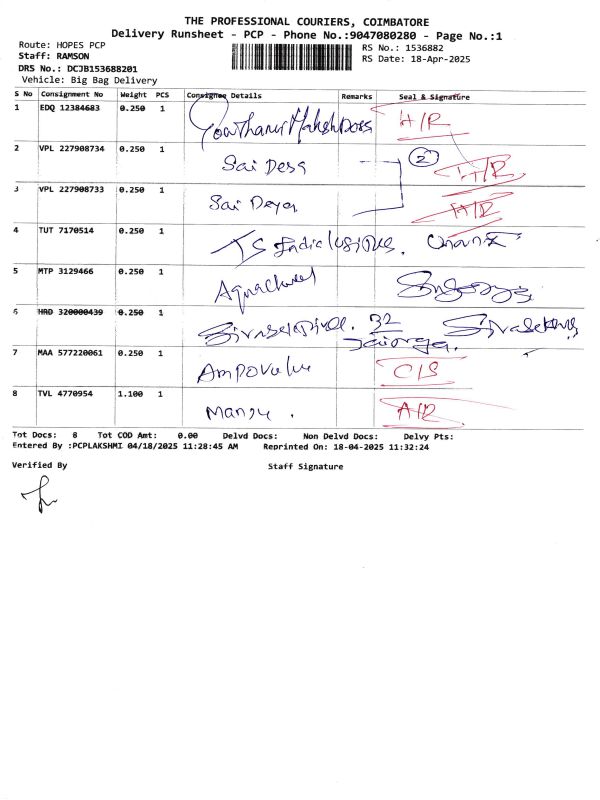 THE PROFESSIONAL COURIERS, COIMBATORE
Delivery Runsheet - PCP - Phone No.:9047080280 - Page No.:1
Route: HOPES PCP
RS No.: 1536882
Staff: RAMSON
RS Date: 18-Apr-2025
DRS No.: DCJB153688201
Vehicle: Big Bag Delivery
S No Consignment No Weight PCS Consignee Details Remarks Seal & Signature
1 EDQ 12384683 0.250 1 H/R
2 VPL 227908734 0.250 1 Sai Dess 2 H/R
3 VPL 227908733 0.250 1 Sai Deya H/R
4 TUT 7170514 0.250 1 TS
5 MTP 3129466 0.250 1
6 HRD 320000439 0.250 1 32
7 MAA 577220061 0.250 1 C/S
8 TVL 4770954 1.100 1 A/R
Tot Docs: 8 Tot COD Amt: 0.00 Delvd Docs: Non Delvd Docs: Delvy Pts:
Entered By :PCPLAKSHMI 04/18/2025 11:28:45 AM Reprinted On: 18-04-2025 11:32:24
Verified By Staff Signature